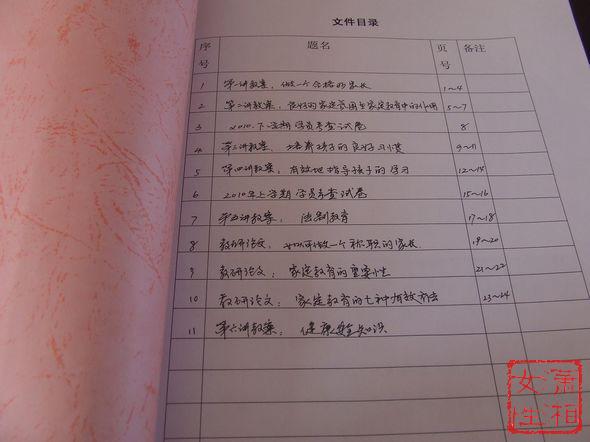 文件目录
序号 题名 页号 备注
1 第一讲教案、做一个合格的家长 1~4
2 第二讲教案、良好的家庭氛围在家庭教育中的作用 5~7
3 2010.下学期学员考查试卷 8
4 第三讲教案、培养孩子的良好习惯 9~11
5 第四讲教案、有效地指导孩子的学习 12~14
6 2010年上学期学员考查试卷 15~16
7 第五讲教案、法制教育 17~18
8 教研论文、如何做一个称职的家长 19~20
9 教研论文：家庭教育的重要性 21~22
10 教研论文：家庭教育的七种有效方法 23~24
11 第六讲教案：健康安全知识
潇湘女性